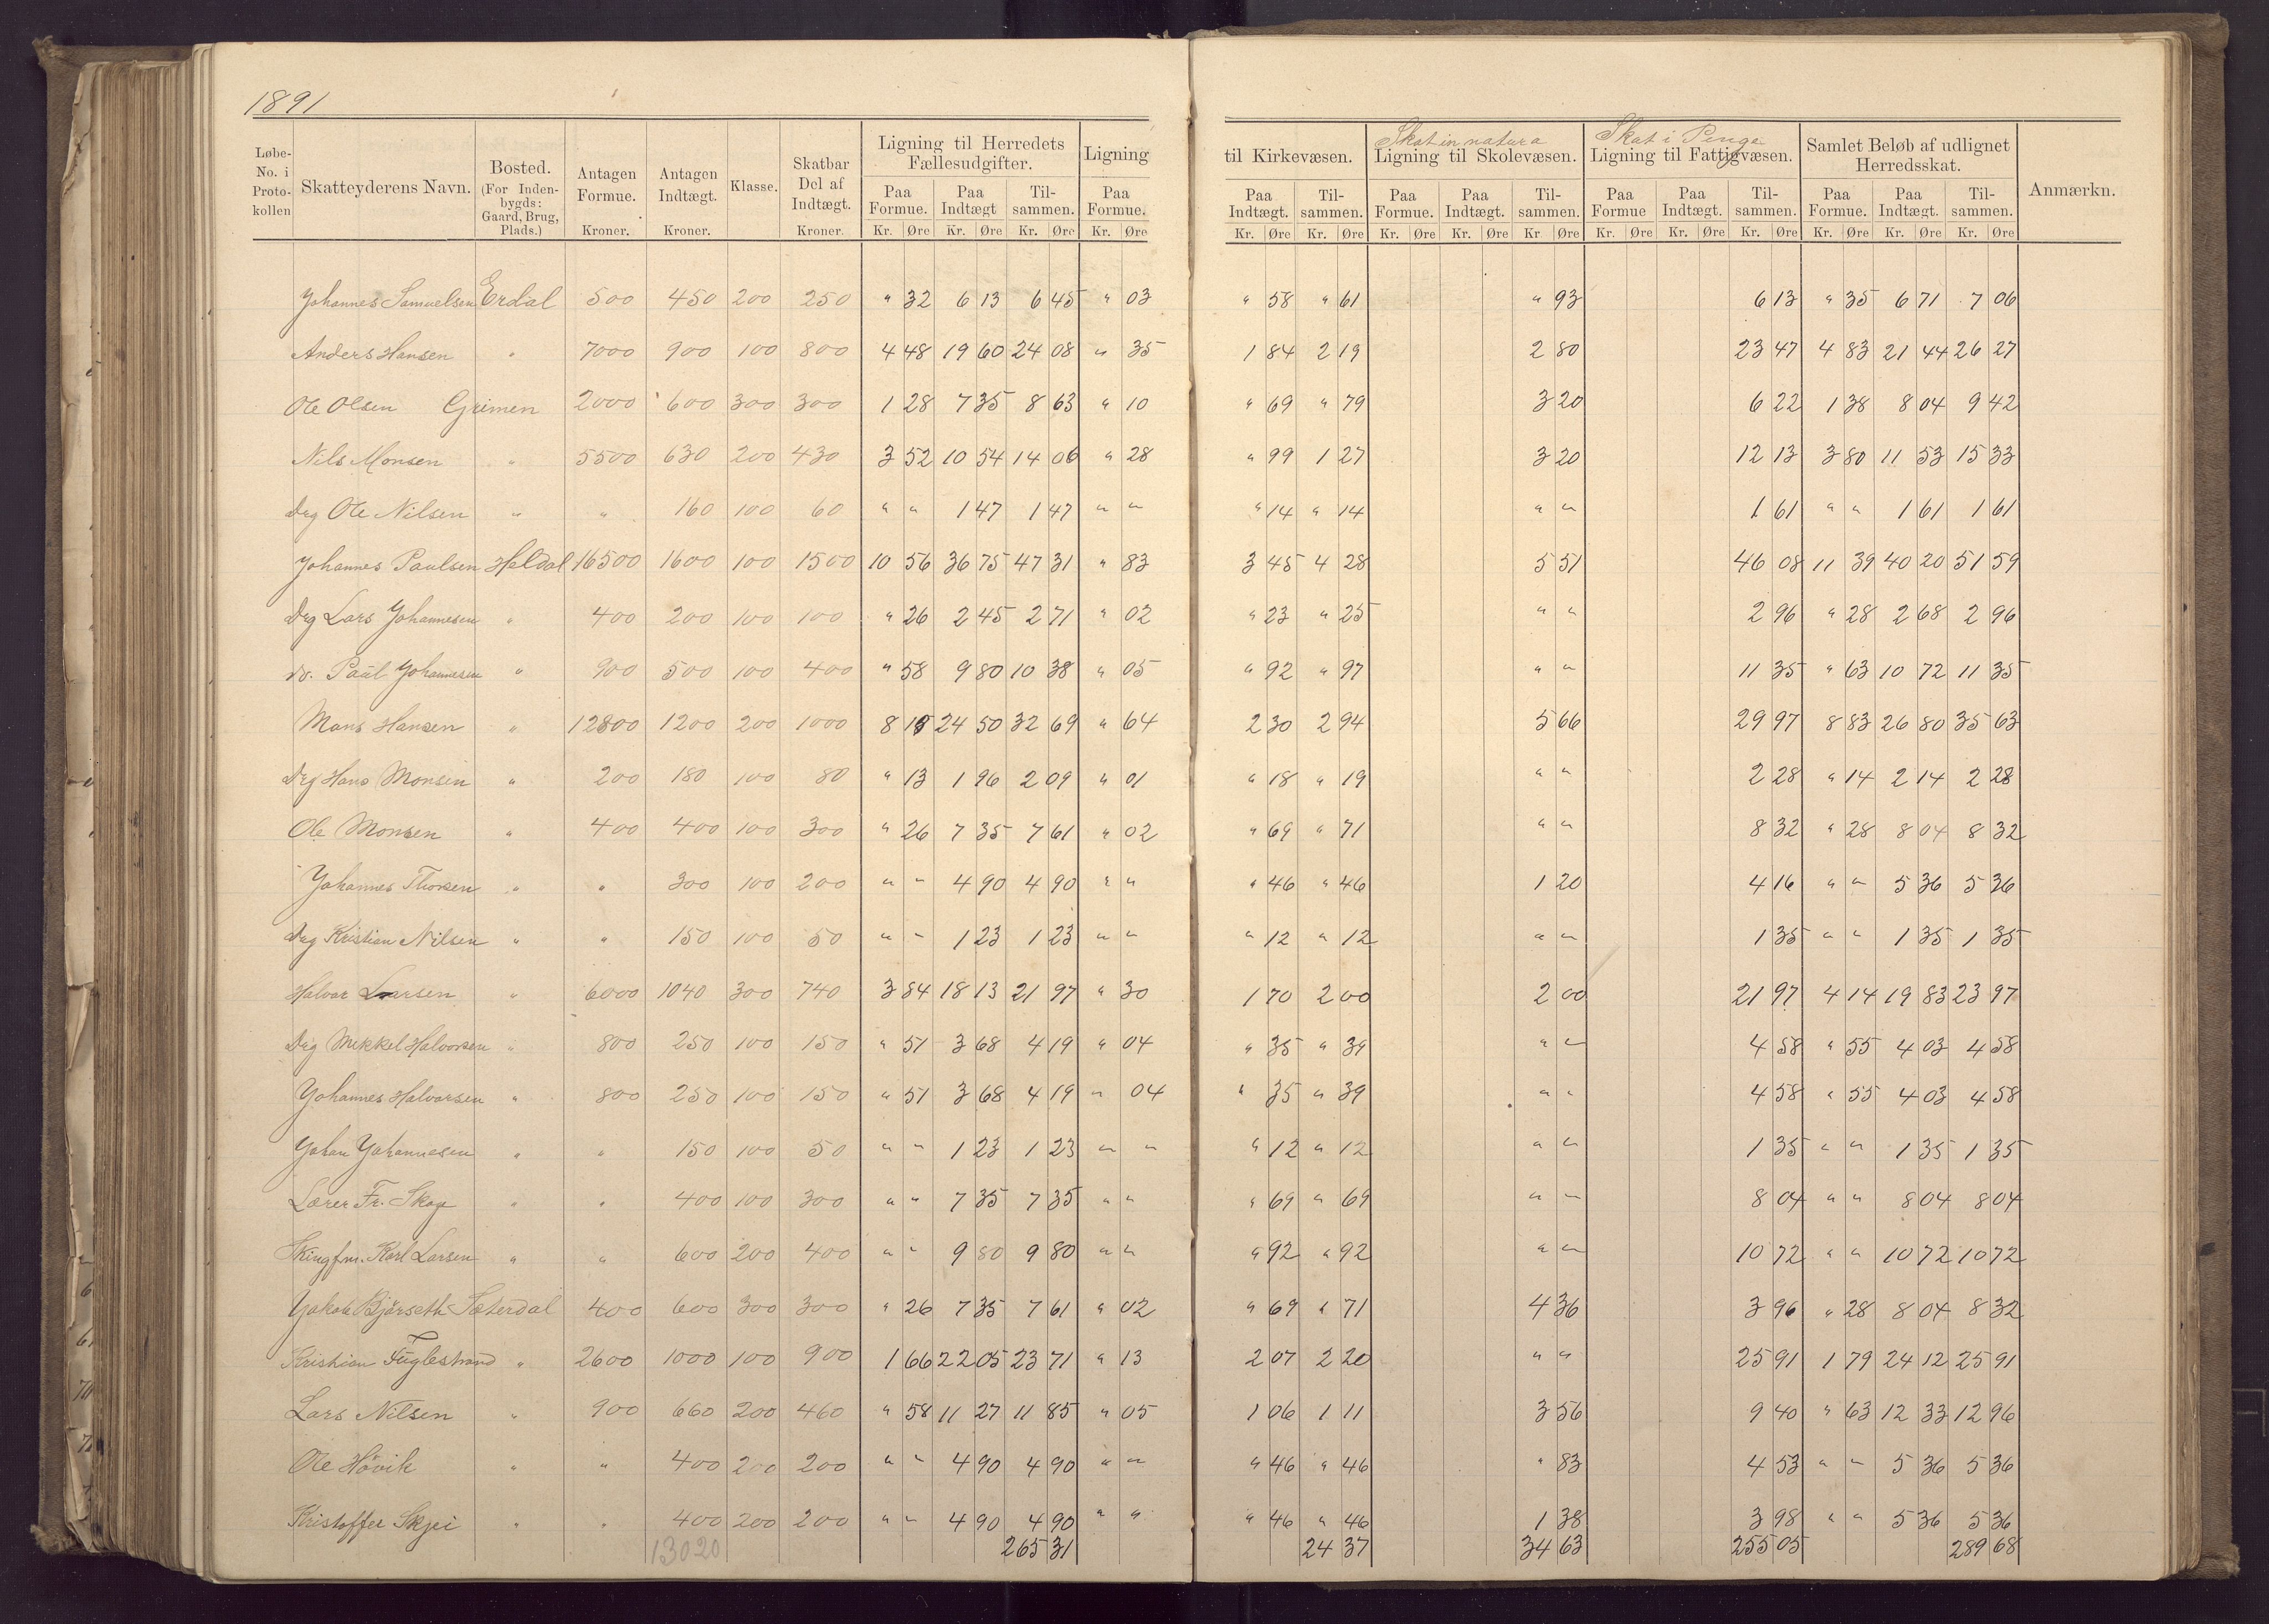 1891
Løbe-No. i Protokollen | Skatteyderens Navn. | Bosted. (For Inden-bygds: Gaard, Brug, Plads.) | Antagen Formue. Kroner. | Antagen Indtægt. Kroner. | Klasse. | Skatbar Del af Indtægt. Kroner. | Ligning til Herredets Fællesudgifter. Paa Formue. Kr. Øre | Paa Indtægt Kr. Øre | Til-sammen. Kr. Øre | Ligning Paa Formue. Kr. Øre | til Kirkevæsen. Paa Indtægt. Kr. Øre | Til-sammen. Kr. Øre | Skat in natura Ligning til Skolevæsen. Paa Formue. Kr. Øre | Paa Indtægt. Kr. Øre | Til-sammen. Kr Øre | Skat i Penge Ligning til Fattigvæsen. Paa Formue Kr. Øre | Paa Indtægt. Kr. Øre | Til-sammen. Kr. Øre | Samlet Beløb af udlignet Herredsskat. Paa Formue. Kr. Øre | Paa Indtægt. Kr. Øre | Til-sammen. Kr. Øre | Anmærkn.
Johannes Samuelsen Erdal 500 450 200 250 " 32 6 13 6 45 " 03 " 58 " 61 " 93 6 13 " 35 6 71 7 06
Anders Hansen " 7000 900 100 800 4 48 19 60 24 08 " 35 1 84 2 19 2 80 23 47 4 83 21 44 26 27
Ole Olsen Grimen 2000 600 300 300 1 28 7 35 8 63 " 10 " 69 " 79 3 20 6 22 1 38 8 04 9 42
Nils Monsen " 5500 630 200 430 3 52 10 54 14 06 " 28 " 99 1 27 3 20 12 13 3 80 11 53 15 33
Drg Ole Nilsen " " 160 100 60 " " 1 47 1 47 " " " 14 " 14 " " 1 61 " " 1 61 1 61
Johannes Paulsen Haldal 16500 1600 100 1500 10 56 36 75 47 31 " 83 3 45 4 28 5 51 46 08 11 39 40 20 51 59
Drg Lars Johannesen " 400 200 100 100 " 26 2 45 2 71 " 02 " 23 " 25 " " 2 96 " 28 2 68 2 96
do. Paul Johannesen " 900 500 100 400 " 58 9 80 10 38 " 05 " 92 " 97 " " 11 35 " 63 10 72 11 35
Mons Hansen " 12800 1200 200 1000 8 19 24 50 32 69 " 64 2 30 2 94 5 66 29 97 8 83 26 80 35 63
Drg Hans Monsen " 200 180 100 80 " 13 1 96 2 09 " 01 " 18 " 19 " " 2 28 " 14 2 14 2 28
Ole Monsen " 400 400 100 300 " 26 7 35 7 61 " 02 " 69 " 71 " " 8 32 " 28 8 04 8 32
Johannes Thorsen " " 300 100 200 " " 4 90 4 90 " " " 46 " 46 1 20 4 16 " " 5 36 5 36
Drg Kristian Nilsen " " 150 100 50 " " 1 23 1 23 " " " 12 " 12 " " 1 35 " " 1 35 1 35
Halvor Larsen " 6000 1040 300 740 3 84 18 13 21 97 " 30 1 70 2 00 2 00 21 97 4 14 19 83 23 97
Drg Mikkel Halvorsen " 800 250 100 150 " 51 3 68 4 19 " 04 " 35 " 39 " " 4 58 " 55 4 03 4 58
Johannes Halvorsen " 800 250 100 150 " 51 3 68 4 19 " 04 " 35 " 39 " " 4 58 " 55 4 03 4 58
Johan Johannesen " " 150 100 50 " " 1 23 1 23 " " " 12 " 12 " " 1 35 " " 1 35 1 35
Lærer Fr. Skog " " 400 100 300 " " 7 35 7 35 " " " 69 " 69 " " 8 04 " " 8 04 8 04
Karl Larsen " " 600 200 400 " " 9 80 9 80 " " " 92 " 92 " " 10 72 " " 10 72 10 72
Jakob Bjørseth Sæterdal 400 600 300 300 " 26 7 35 7 61 " 02 " 69 " 71 4 36 3 96 " 28 8 04 8 32
Kristian Fuglestrand " 2600 1000 100 900 1 66 22 05 23 71 " 13 2 07 2 20 " " 25 91 1 79 24 12 25 91
Lars Nilsen " 900 660 200 460 " 58 11 27 11 85 " 05 1 06 1 11 3 56 9 40 " 63 12 33 12 96
Ole Høvik " " 400 200 200 " " 4 90 4 90 " " " 46 " 46 " 83 4 53 " " 5 36 5 36
Kristoffer Skjei " " 400 200 200 " " 4 90 4 90 " " " 46 " 46 1 38 3 98 " " 5 36 5 36
13020 265 31 24 37 34 63 255 05 289 68